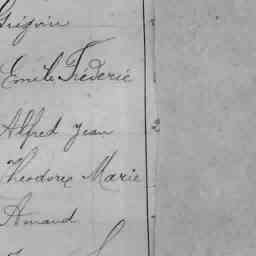 Grégoire
Emile Frederic
Alfred Jean
2
Theodore Marie
Amand